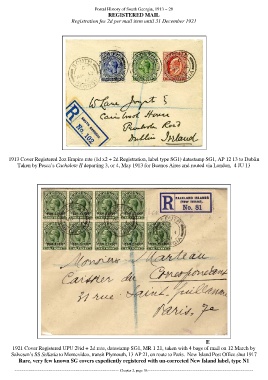 Postal History of South Georgia, 1911 – 20
REGISTERED MAIL
Registration fee 2d per mail item until 31 December 1921
R
No. 102
W Lane Joynt
Cairnbrook House
Pembroke Road
Dublin Ireland
1913 Cover Registered 2oz Empire rate (1d x2 + 2d Registration, label type SG1) datestamp SG1, AP 12 13 to Dublin
Taken by Pesca's Cachalote II departing 3, or 4, May 1913 for Buenos Aires and routed via London, 4 JU 13
R
FALKLAND ISLANDS
No. 81
Monsieur Marteau
Caissier du
21 rue Saint Guillaume
Paris, 7e
E
1921 Cover Registered UPU 2½d + 2d rate, datestamp SG1, MR 1 21, taken with 4 bags of mail on 12 March by
Salvesen's SS Sevilla to Montevideo, transit Plymouth, 13 AP 21, en route to Paris. New Island Post Office shut 1917
Rare, very few known SG covers expediently registered with un-corrected New Island label, type N1
Chapter 3, page